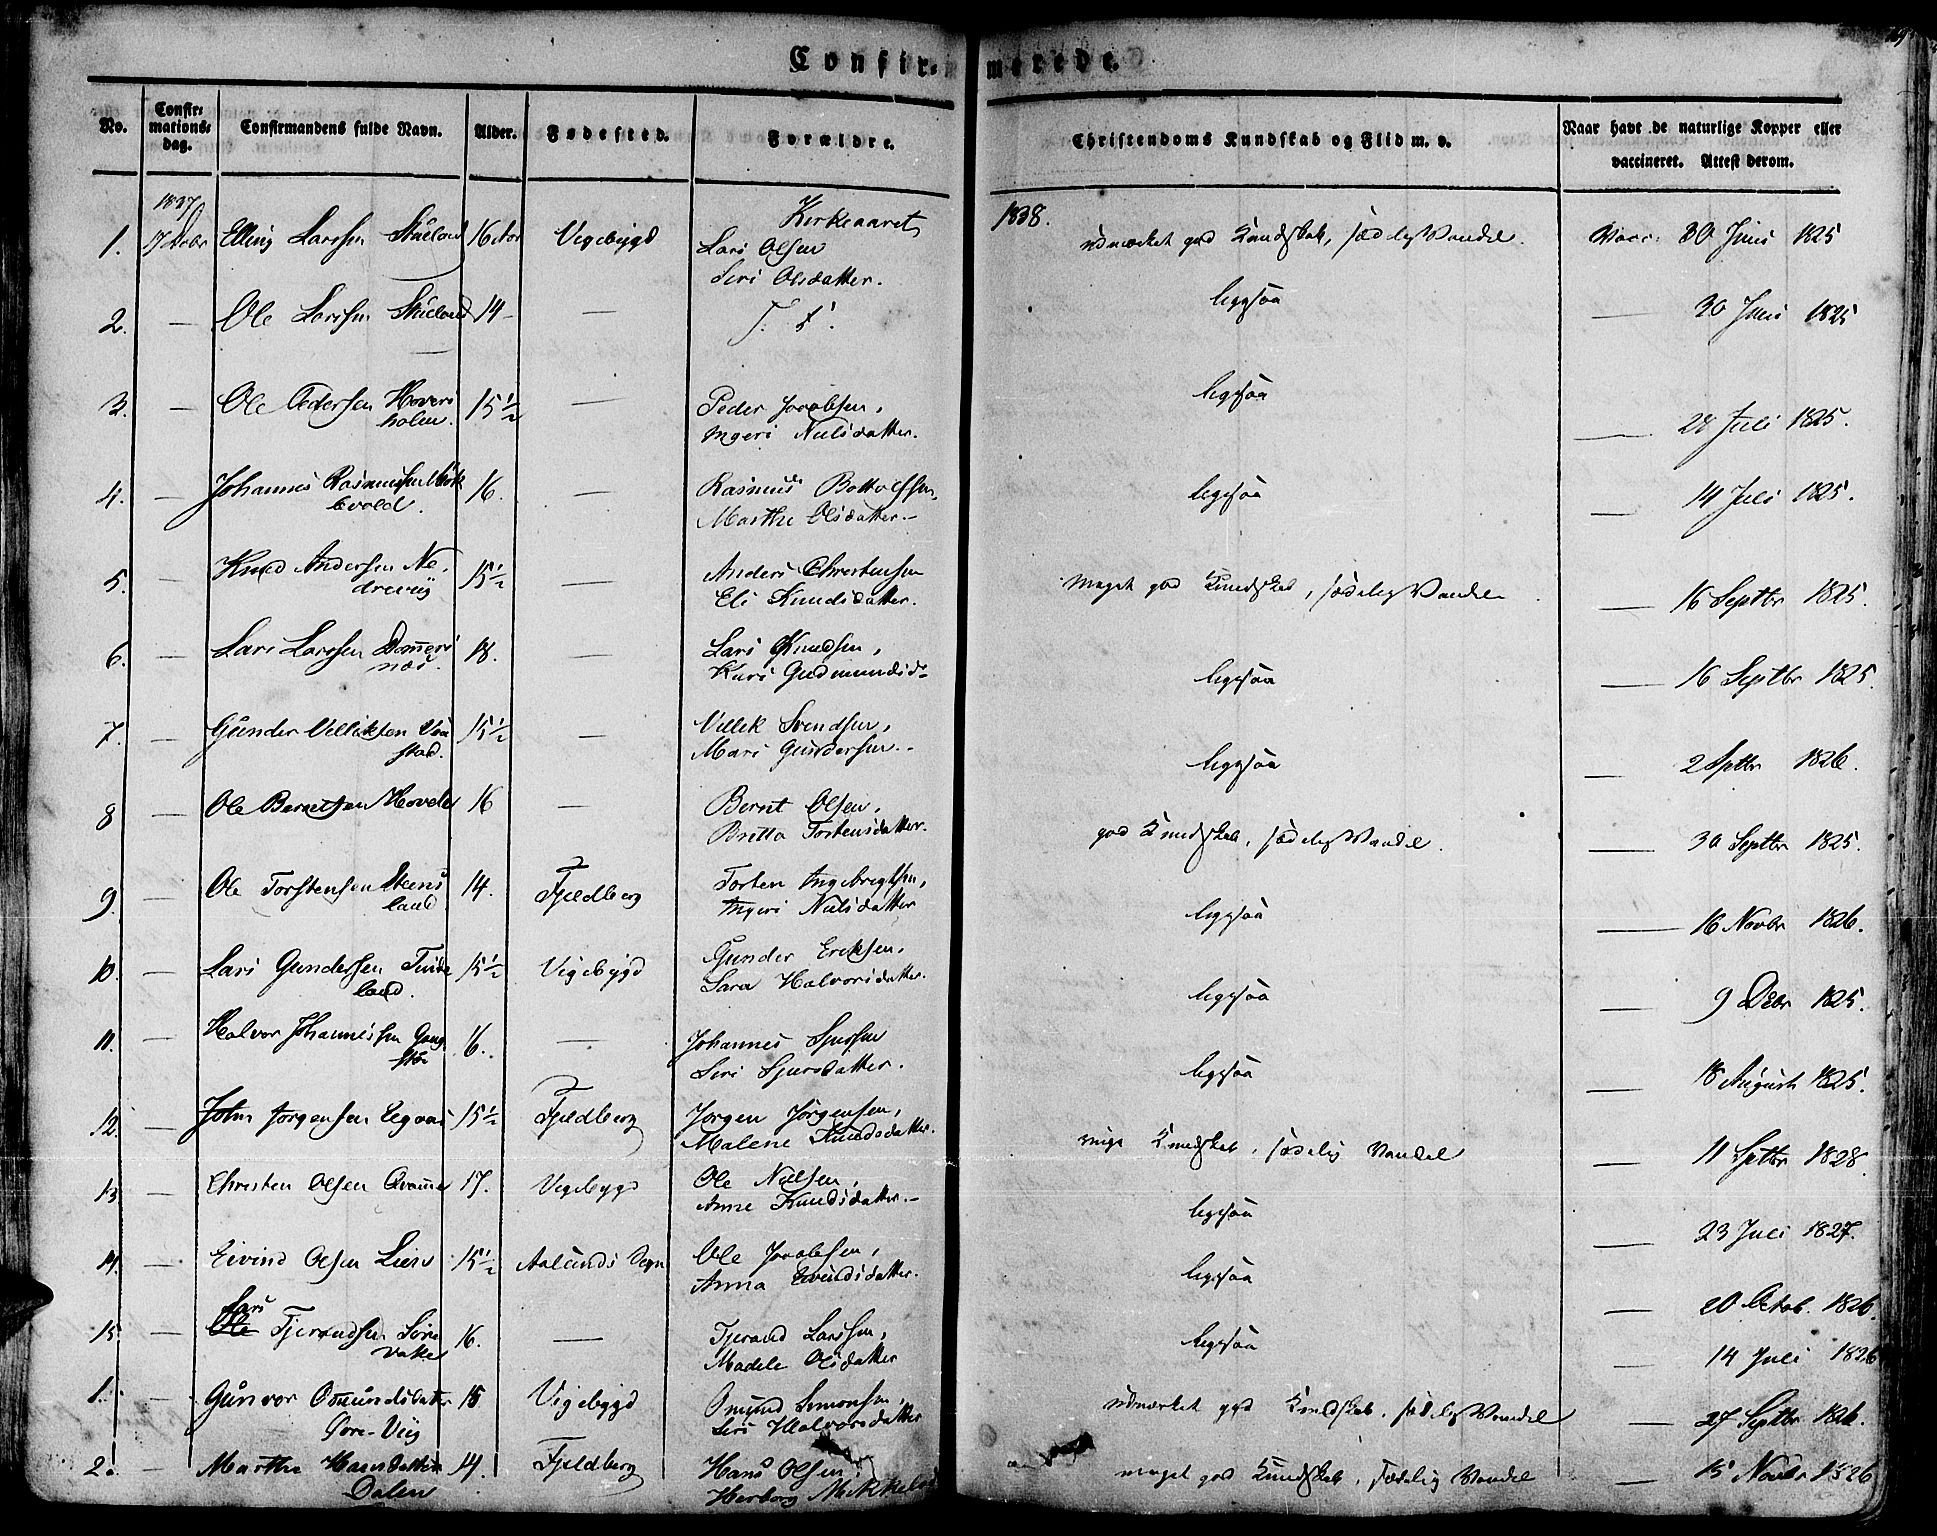 Confirmerede.
No.
Confir-
mations-
dag.
Confirmandens fulde Navn.
Alder.
Fødested.
Forældre.
Christendoms Kundskab og Flid m. v.
Naar havt de naturlige Kopper eller
vaccineret. Attest derom.
1837
Kirkeaaret 1838.
1. 17 Decbr Elling Larssen 16 Aar Vigebygd Lars Olsen udmærket god Kundskab, sædelig Vandel. Vacc. 30 Juni 1825
Siri Olsdatter.
2. — Ole Larssen 14 — — ligesaa — 30 Juni 1825
3. — Ole Pedersen Hovers 15½ — Peder Jacobsen, ligesaa — 28 Juli 1825.
holm. Ingeri Nielsdatter.
4. — Johannes Rasmussen 16. — Rasmus ligesaa — 14 Juli 1825.
Marthe Olsdatter.
5. — Knud Andersen Ne- 15½ — Anders Christensen meget god Kundskab, sædelig Vandel. — 16 Septbr 1825.
drevig Eli Knudsdatter.
6. — Lars Larssen 18. — Lars Knudsen, ligesaa — 16 Septbr 1825.
næs. Kari Gudmundsd-
7. — Gunder 15½ — Svendsen, ligesaa — 2 Sptbr 1826.
stad. Mari Gundersen.-
8 — Ole Berntsen 16 — Bernt Olsen, god Kundskab, sædelig Vandel. — 30 Septbr 1825.
Britta Torstensdatter.
9. — Ole Torstensen Steens 14. Fjeldberg Torsten Ingebrigtsen, ligesaa — 16 Novbr 1826.
land. Ingeri Nielsdatter
10. — Lars Gundersen 15½ Vigebygd Gunder Eriksen, ligesaa — 9 Decbr 1825.
land. Sara Halvorsdatter.
11. — Halvor Johannessen 16. — Johannes Sjursen ligesaa — 18 August 1825.
Siri Sjursdatter.
12. — John Jørgensen 15½ Fjeldberg Jørgen Jørgensen, ringe Kundskab, sædelig Vandel — 11 Sptbr 1828.
Malene Knudsdatter.
13 — Christen Olsen 17. Vigebygd Ole Nielsen, ligesaa — 23 Juli 1827.
Anne Knudsdatter.-
14. — Eivind Olsen 15½ Aalunds Ole Jacobsen, ligesaa — 20 Octob. 1826
Anna Eivindsdatter.
Lars
15 — Ole Tjerandsen Søre 16. — Tjerand Larssen, ligesaa — 14 Juli 1826
Madele Olsdatter
1. — Gunvor Omundsdatter 15 Vigebygd Omund Simonsen, udmærket god Kundskab, sædelig Vandel — 27 Septbr 1826.
Øvre-Viig Siri Halvorsdatter
2. — Marthe Hansdatter 14. Fjeldberg Hans Olsen, meget god Kundskab, sædelig Vandel — 15 Novbr 1826
Dalen Herborg